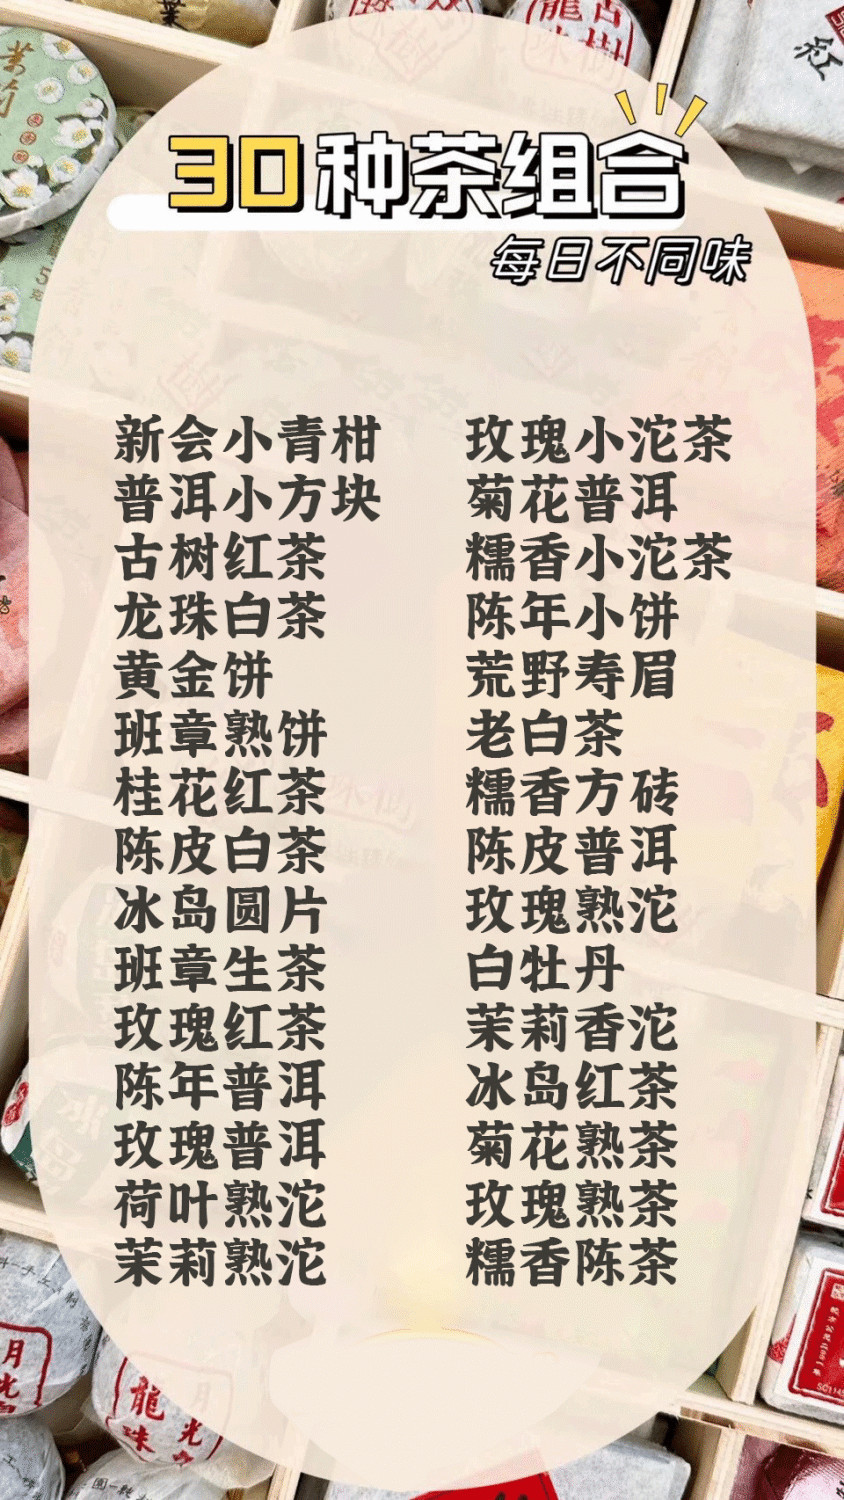 30种茶组合
每日不同味
新会小青柑
普洱小方块
古树红茶
龙珠白茶
黄金饼
班章熟饼
桂花红茶
陈皮白茶
冰岛圆片
班章生茶
玫瑰红茶
陈年普洱
玫瑰普洱
荷叶熟沱
茉莉熟沱
玫瑰小沱茶
菊花普洱
糯香小沱茶
陈年小饼
荒野寿眉
老白茶
糯香方砖
陈皮普洱
玫瑰熟沱
白牡丹
茉莉香沱
冰岛红茶
菊花熟茶
玫瑰熟茶
糯香陈茶
古樹
龍珠
紅
月光
龍珠